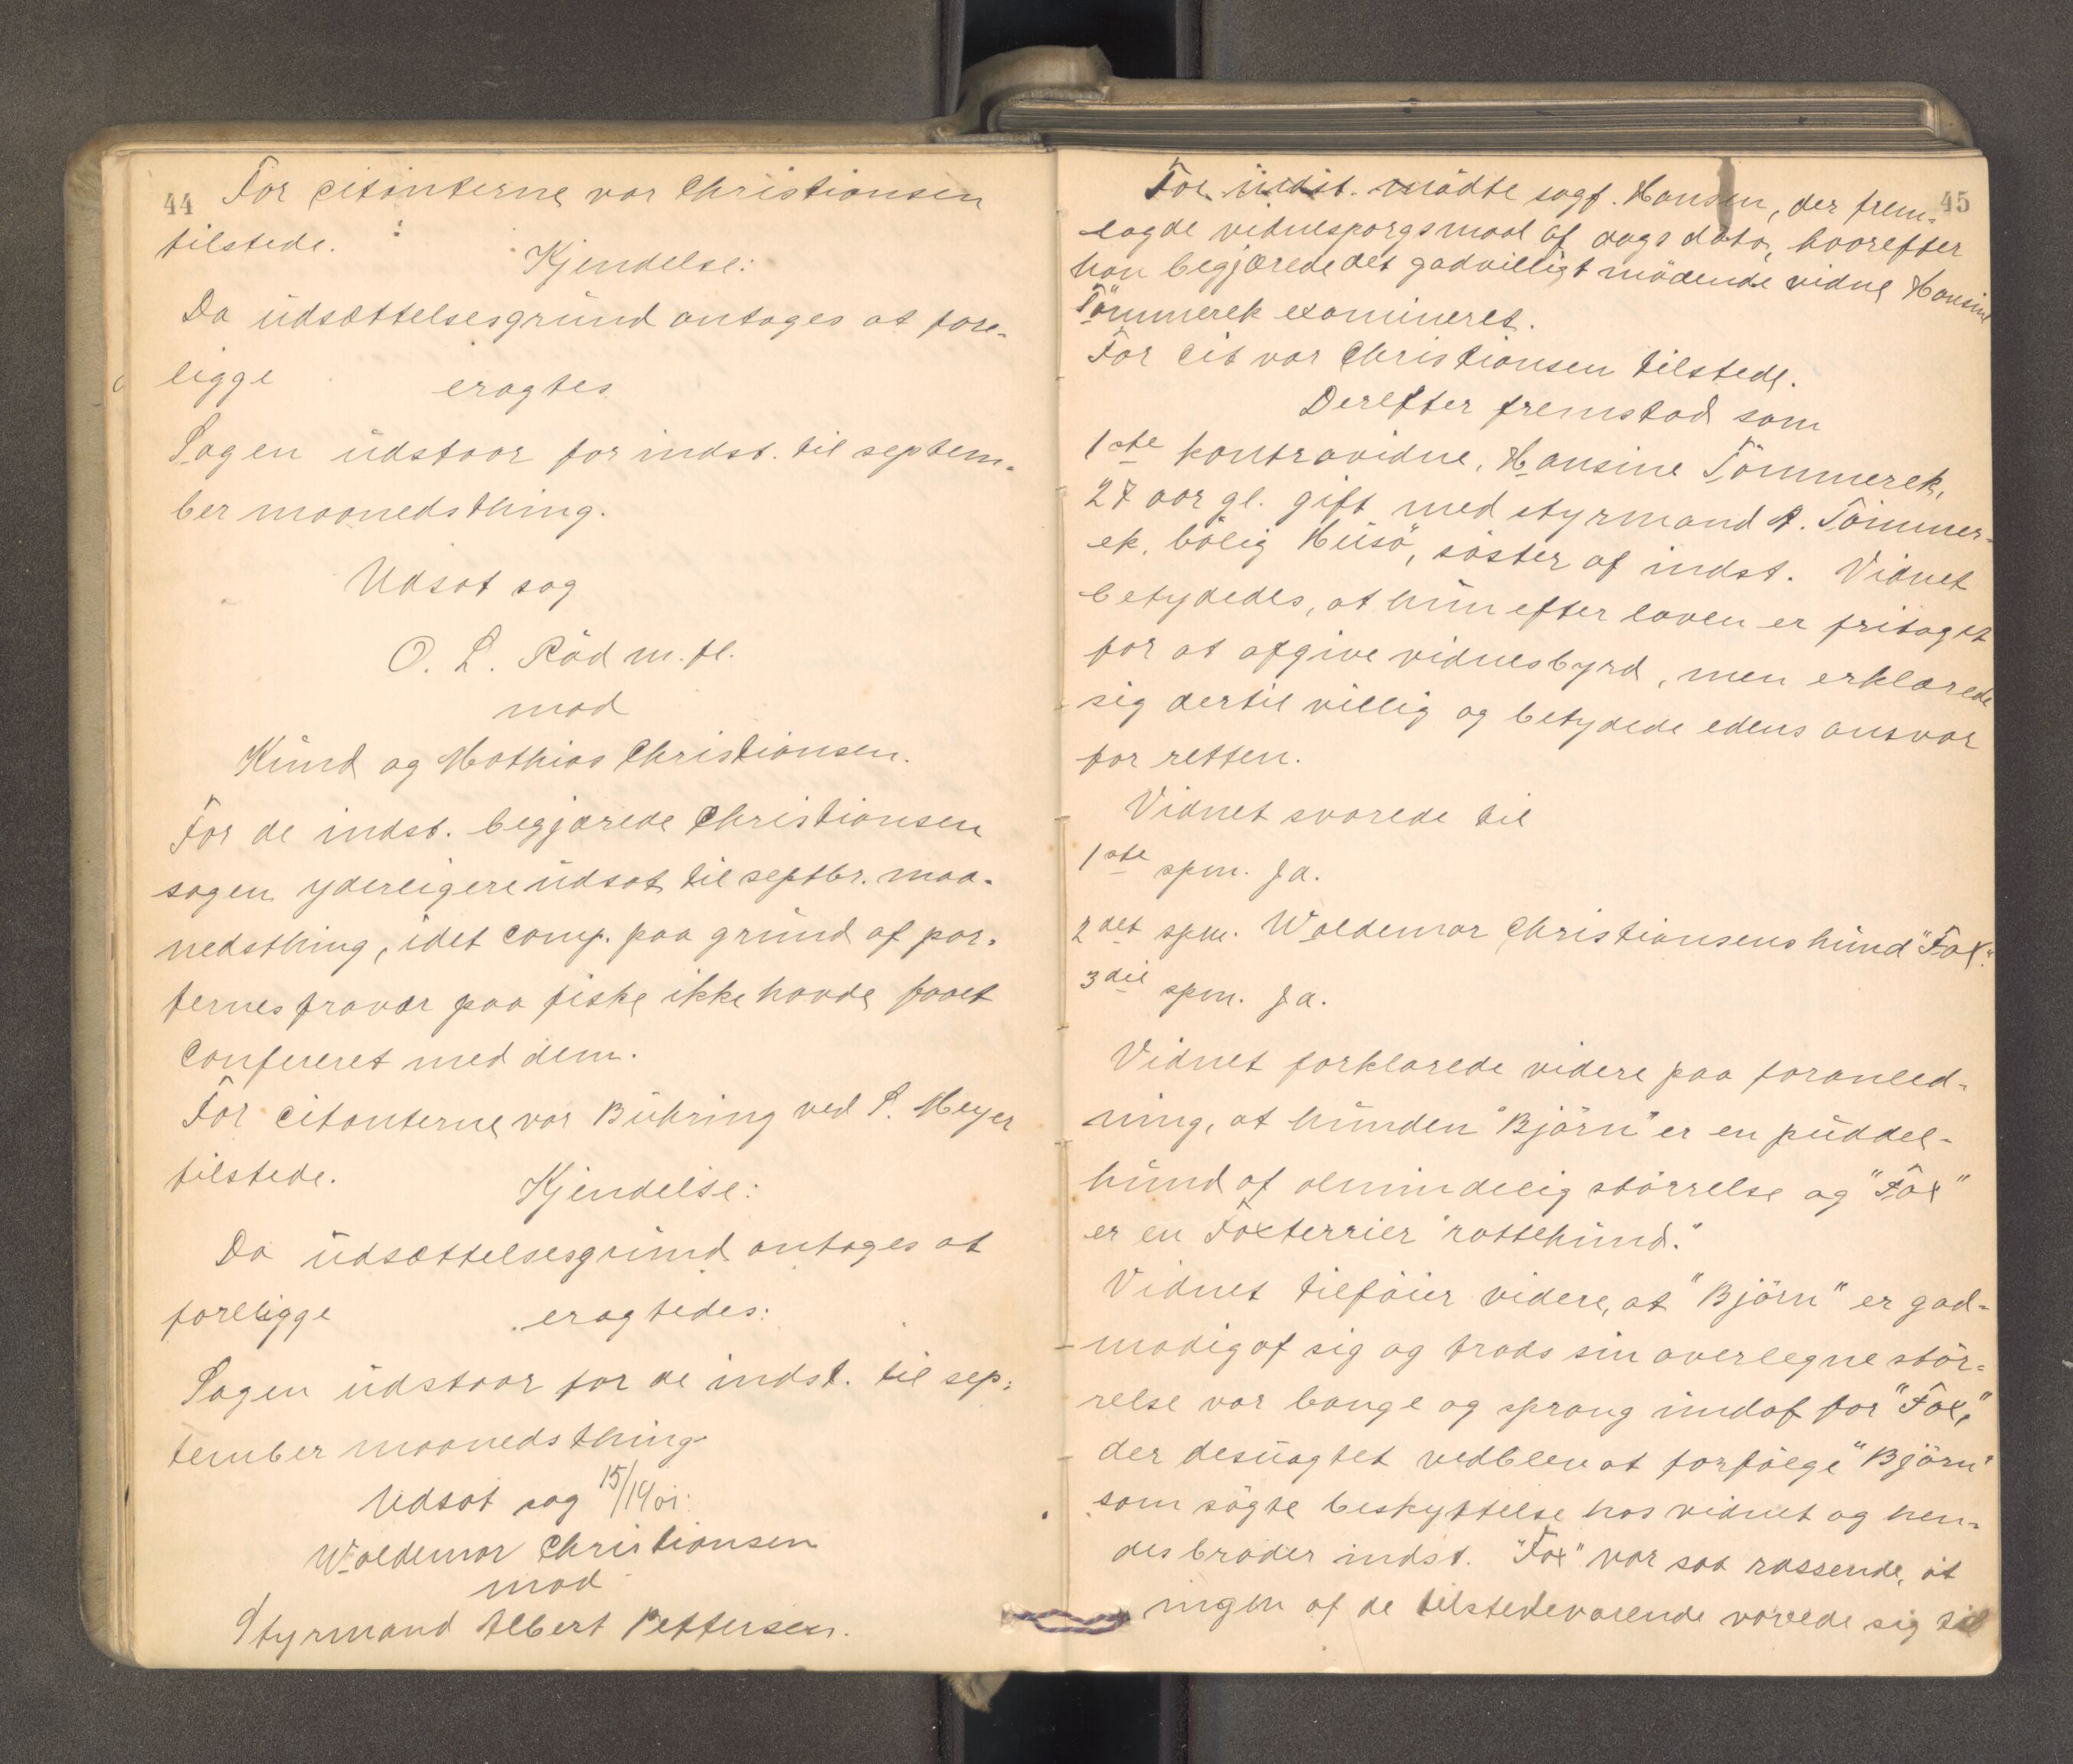 44
For citanterne var Christiansen
tilstede.
Kjendelse:
Da udsættelsesgrund antages at fore-
ligge eragtes
Sagen udstaar for indst. til septem-
ber maanedsthing.
Udsat sag
O. L. Röd m. fl.
mod
Knud og Mathias Christiansen.
For de indst. begjærede Christiansen
sagen yderligere udsat til septbr. maa-
nedsthing, idet comp. paa grund af par-
ternes fravær paa fiske ikke havde faaet
confereret med dem.
For citanterne var Bühring ved S. Meyer
tilstede.
Kjendelse:
Da udsættelsesgrund antages at
foreligge eragtedes:
Sagen udstaar for de indst. til sep-
tember maanedsthing.
Udsat sag 15/1901:
Waldemar Christiansen
mod
Styrmand Albert Pettersen.
45
For indst. mödte sagf. Hansen, der frem-
lagde vidnespörgsmaal af dags dato, hvorefter
han begjærede det godvilligt mödende vidne Hansine
Tömmerek examineret.
For cit var Christiansen tilstede.
Derefter fremstod som
1ste kontravidne, Hansine Tömmerek,
27 aar gl. gift med styrmand A. Tömmer-
ek, bolig Husö, söster af indst. Vidnet
betydedes, at hun efter loven er fritaget
for at afgive vidnesbyrd, men erklærede
sig dertil villig og betydede edens ansvar
for retten.
Vidnet svarede til
1ste spm. Ja.
2det spm. Waldemar Christiansens hund "Fox".
3die spm. Ja.
Vidnet forklarede videre paa foranled-
ning, at hunden "Björn" er en puddel-
hund af almindelig störrelse og "Fox"
er en Foxterrier "rottehund."
Vidnet tilföier videre, at "Björn" er god-
modig af sig og trods sin overlegne stör-
relse var bange og sprang undaf for "Fox,"
der desuagtet vedblev at forfölge "Björn"
som sögte beskyttelse hos vidnet og hen-
des broder indst. "Fox" var saa rassende, at
ingen af de tilstedeværende vovede sig til